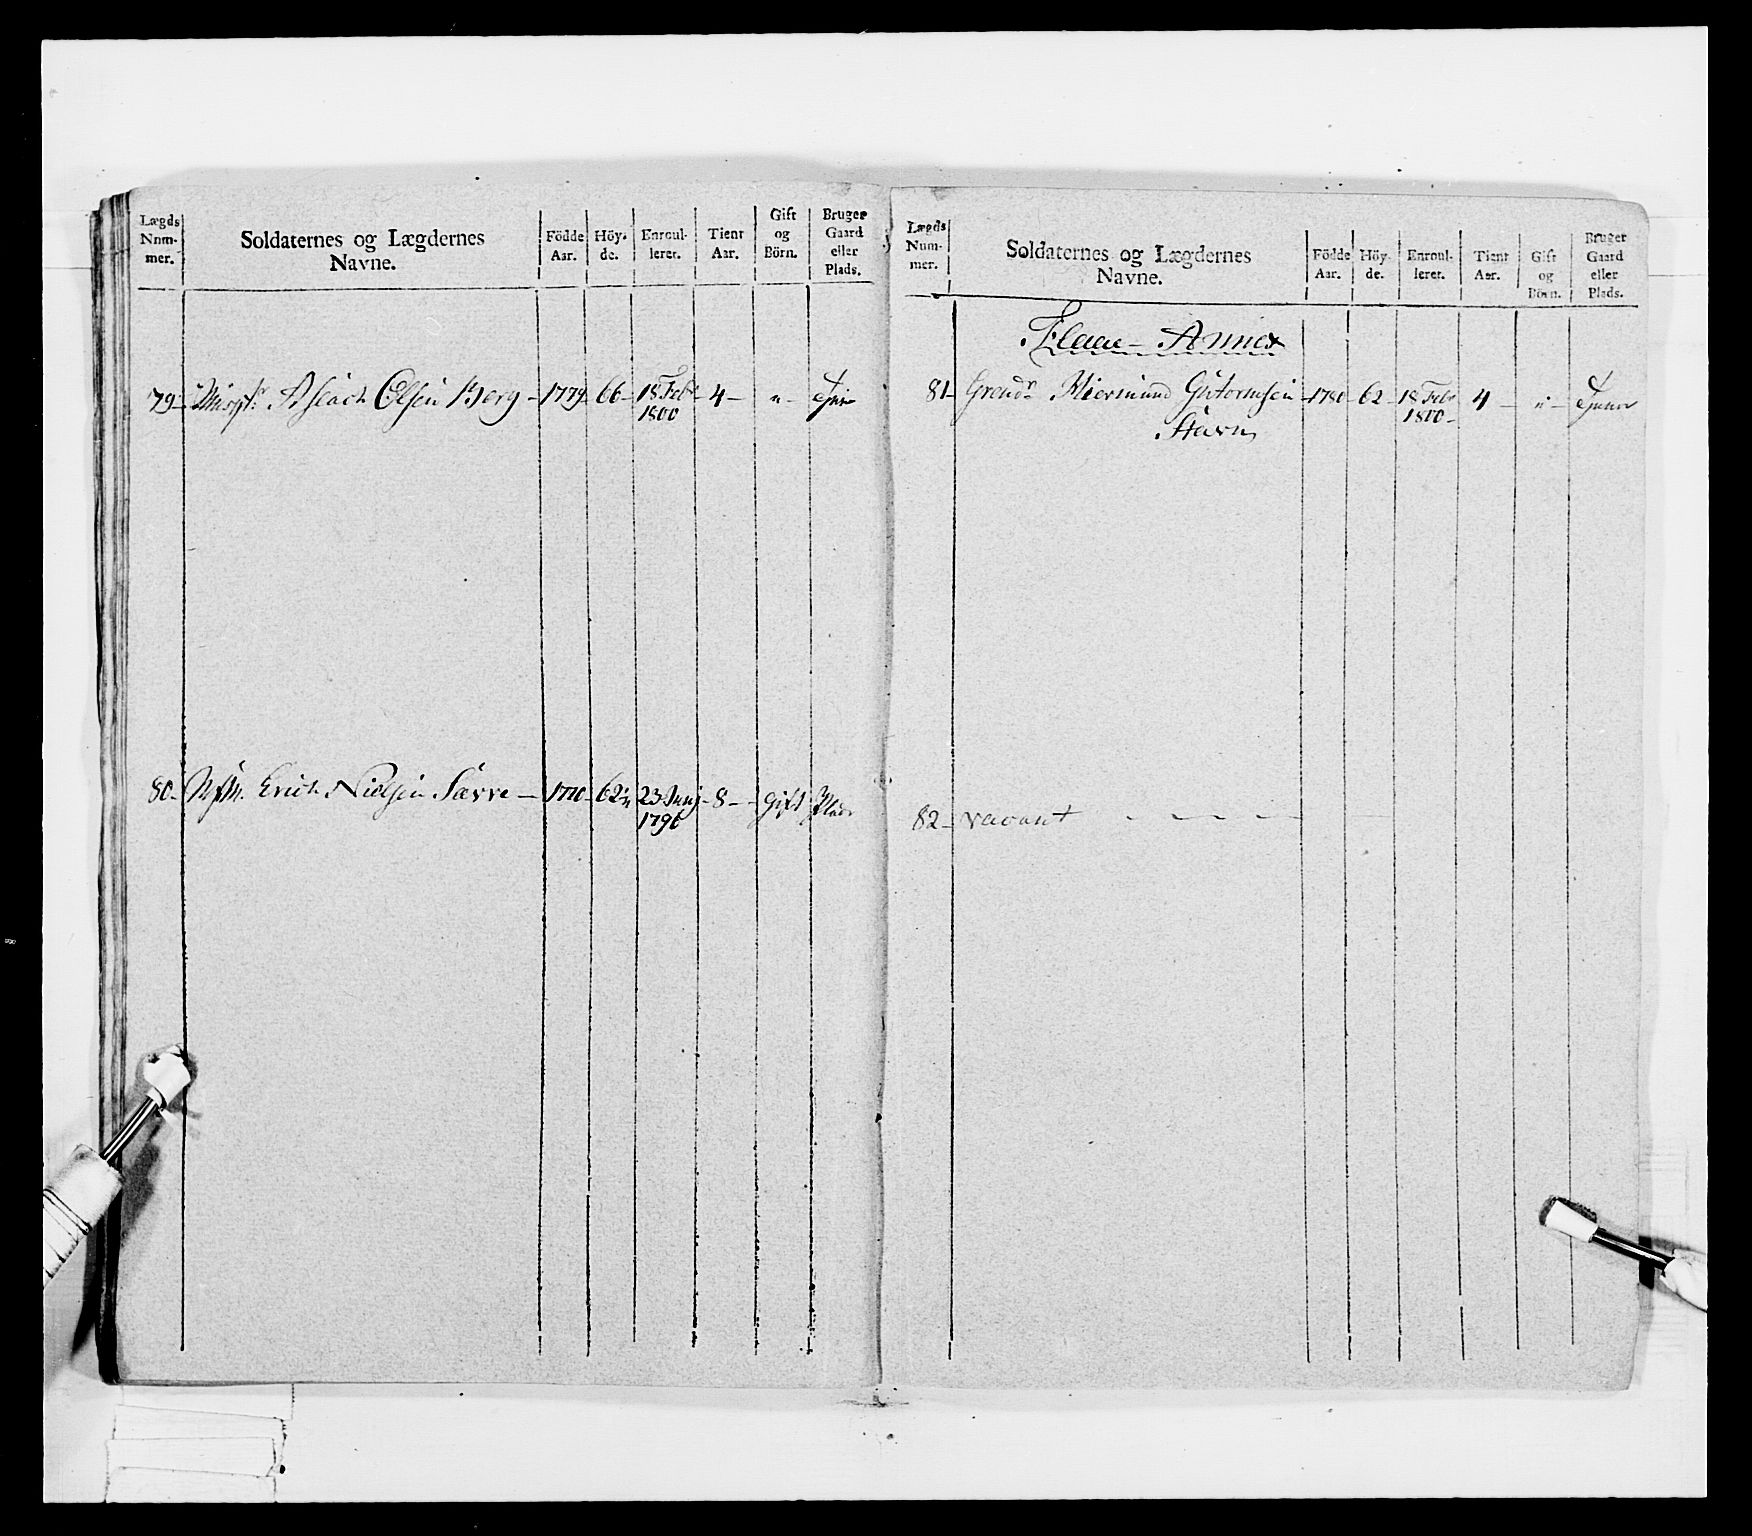 Lægds
Num-
mer.
Soldaternes og Lægdernes
Navne.
Födde
Aar.
Höy-
de.
Enroul-
leret.
Tient
Aar.
Gift
og
Börn.
Bruger
Gaard
eller
Plads.
79- Aslach Olsen Berg - 1779 66- 18 Febr 4- u-
1800
80- Erich Nielsen Sævre - 1770 62 23 Junj 8- Gift Plads
1796
Lægds
Num-
mer.
Soldaternes og Lægdernes
Navne.
Födde
Aar.
Höy-
de.
Enroul-
leret.
Tient
Aar.
Gift
og
Börn.
Bruger
Gaard
eller
Plads.
Flaae - Annex
81- Grendr Hiermund Guttormsen 1780 62- 18 Febr 4- u- Tjener
Stavn 1800-
82- vacant - - - - -